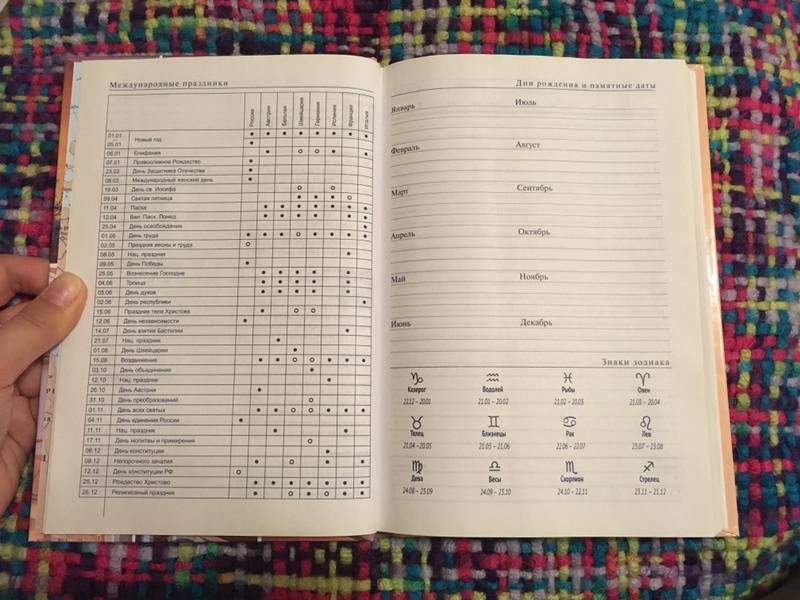 Международные праздники
Россия Австрия Бельгия Швейцария Германия Испания Франция Италия
01.01 Новый год
05.01
06.01 Епифания
07.01 Православное Рождество
23.02 День Защитника Отечества
08.03 Международный женский день
19.03 День св. Иосифа
09.04 Святая пятница
11.04 Пасха
12.04 Вел. Пасх. Понед.
25.04 День освобождения
01.05 День труда
02.05 Праздник весны и труда
08.05 Нац. праздник
09.05 День Победы
25.05 Вознесение Господне
04.06 Троица
05.06 День духов
02.06 День республики
15.06 Праздник тела Христова
12.06 День независимости
14.07 День взятия Бастилии
21.07 Нац. праздник
01.08 День Швейцарии
15.08 Воздвижение
03.10 День объединения
12.10 Нац. праздник
26.10 День Австрии
31.10 День преобразований
01.11 День всех святых
04.11 День единения России
11.11 Нац. праздник
17.11 День молитвы и примирения
06.12 День конституции
08.12 Непорочного зачатия
12.12 День конституции РФ
25.12 Рождество Христово
26.12 Религиозный праздник
Дни рождения и памятные даты
Январь Июль
Февраль Август
Март Сентябрь
Апрель Октябрь
Май Ноябрь
Июнь Декабрь
Знаки зодиака
Козерог Водолей Рыбы Овен
22.12 – 20.01 21.01 – 20.02 21.02 – 20.03 21.03 – 20.04
Телец Близнецы Рак Лев
21.04 – 20.05 21.05 – 21.06 22.06 – 22.07 23.07 – 23.08
Дева Весы Скорпион Стрелец
24.08 – 23.09 24.09 – 23.10 24.10 – 22.11 23.11 – 21.12